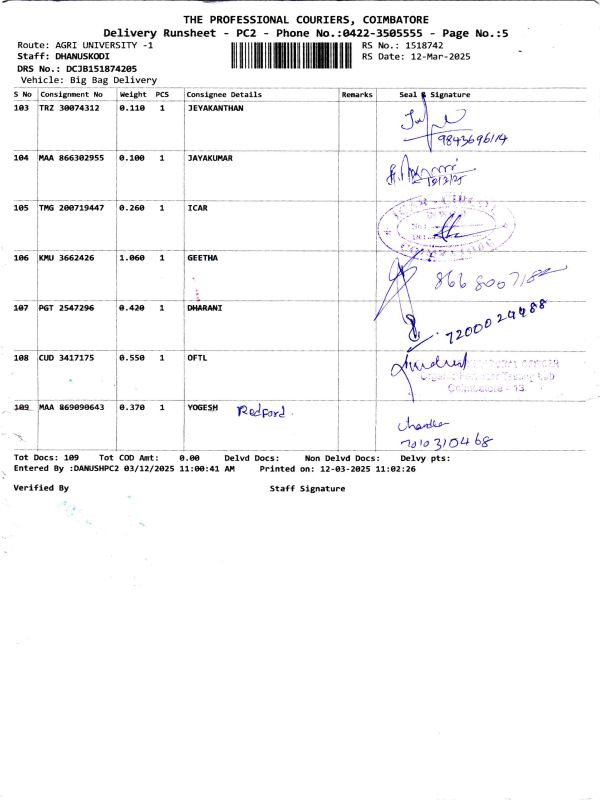 THE PROFESSIONAL COURIERS, COIMBATORE
Delivery Runsheet - PC2 - Phone No.:0422-3505555 - Page No.:5
Route: AGRI UNIVERSITY -1
RS No.: 1518742
Staff: DHANUSKODI
RS Date: 12-Mar-2025
DRS No.: DCJB151874205
Vehicle: Big Bag Delivery
S No Consignment No Weight PCS Consignee Details Remarks Seal & Signature
103 TRZ 30074312 0.110 1 JEYAKANTHAN
9843696114
104 MAA 866302955 0.100 1 JAYAKUMAR
12/3/25
105 TMG 200719447 0.260 1 ICAR
106 KMU 3662426 1.060 1 GEETHA
107 PGT 2547296 0.420 1 DHARANI
7200024488
108 CUD 3417175 0.550 1 OFTL
Coimbatore - 13.
109 MAA 869090643 0.370 1 YOGESH Redford.
7010310468
Tot Docs: 109 Tot COD Amt: 0.00 Delvd Docs: Non Delvd Docs: Delvy pts:
Entered By :DANUSHPC2 03/12/2025 11:00:41 AM Printed on: 12-03-2025 11:02:26
Verified By Staff Signature